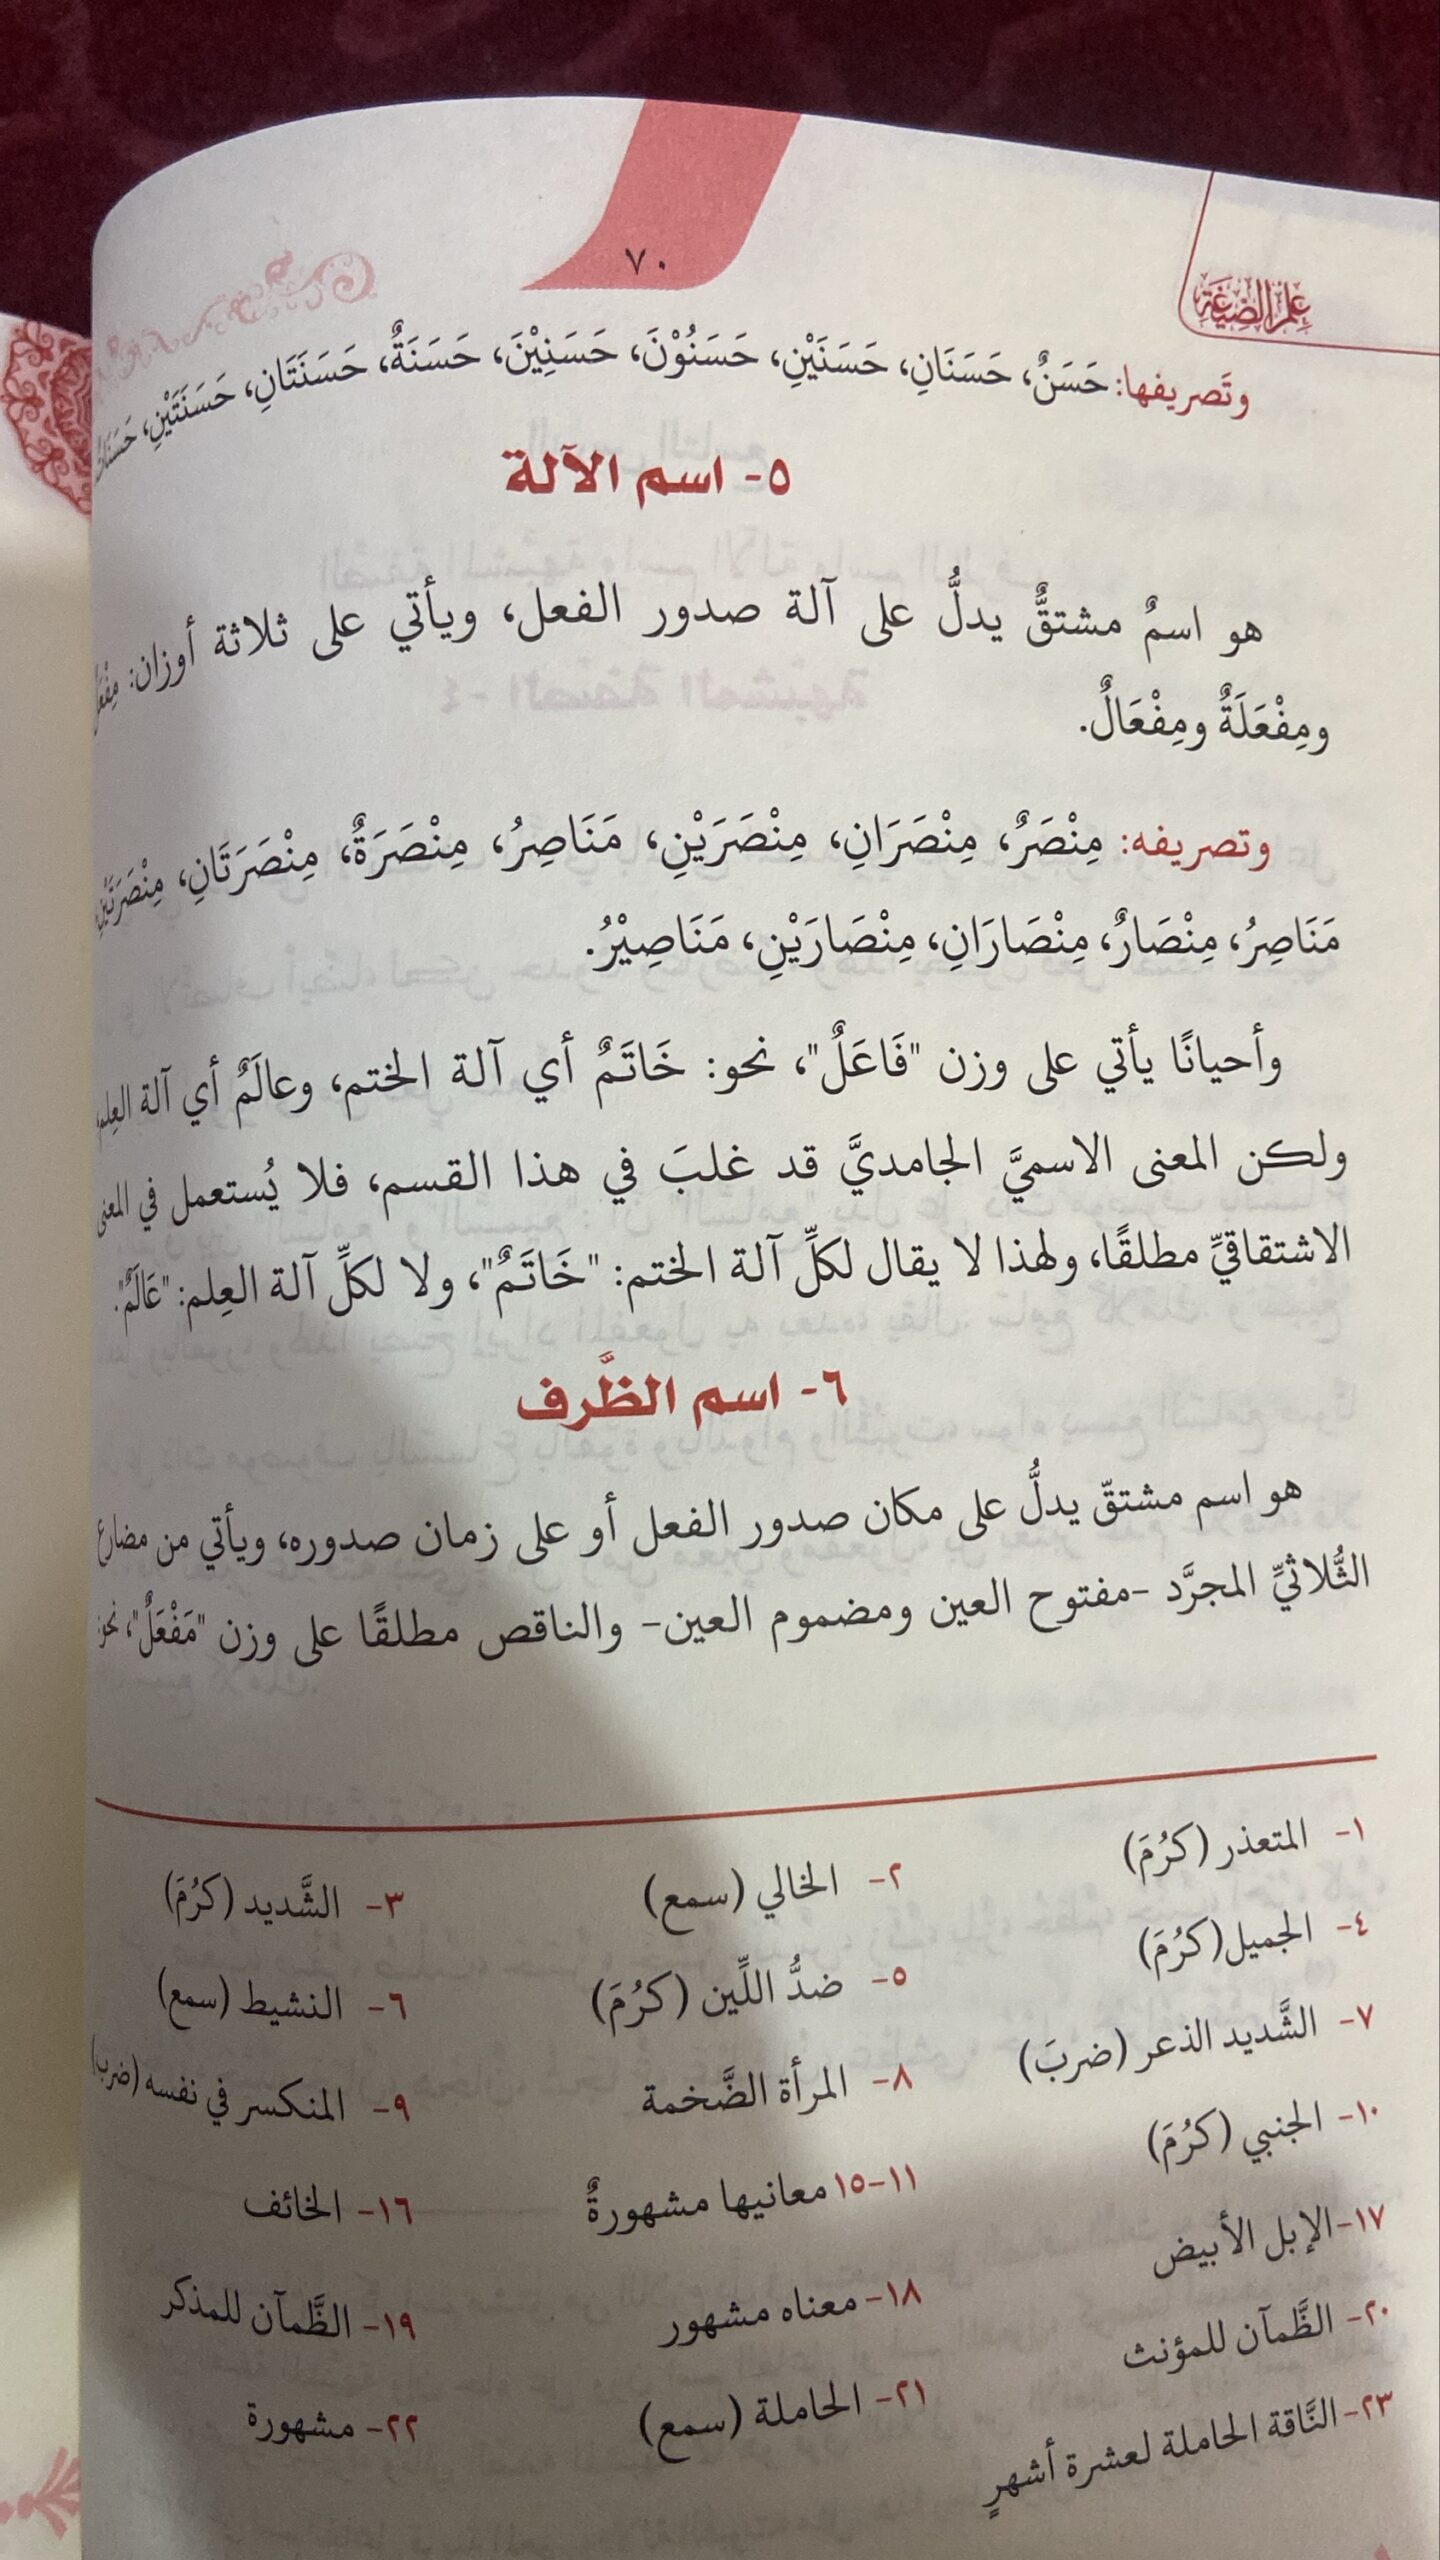 علم الصيغة
٧٠
وتَصريفها: حَسَنٌ، حَسَنَانِ، حَسَنَيْنِ، حَسَنُوْنَ، حَسَنِيْنَ، حَسَنَةٌ، حَسَنَتَانِ، حَسَنَتَيْنِ،
٥- اسم الآلة
هو اسمٌ مشتقٌّ يدلُّ على آلة صدور الفعل، ويأتي على ثلاثة أوزان:
ومِفْعَلَةٌ ومِفْعَالٌ.
وتصريفه: مِنْصَرٌ، مِنْصَرَانِ، مِنْصَرَيْنِ، مَنَاصِرُ، مِنْصَرَةٌ، مِنْصَرَتَانِ، مِنْصَرَتَيْنِ،
مَنَاصِرُ، مِنْصَارٌ، مِنْصَارَانِ، مِنْصَارَيْنِ، مَنَاصِيْرُ.
وأحيانًا يأتي على وزن "فَاعَلٌ"، نحو: خَاتَمٌ أي آلة الختم، وعالَمٌ أي آلة العِلم،
ولكن المعنى الاسميَّ الجامديَّ قد غلبَ في هذا القسم، فلا يُستعمل في المعنى
الاشتقاقيِّ مطلقًا، ولهذا لا يقال لكلِّ آلة الختم: "خَاتَمٌ"، ولا لكلِّ آلة العِلم: "عَالَمٌ".
٦- اسم الظَّرف
هو اسم مشتقّ يدلُّ على مكان صدور الفعل أو على زمان صدوره، ويأتي من مضارع
الثُّلاثيِّ المجرَّد -مفتوح العين ومضموم العين- والناقص مطلقًا على وزن "مَفْعَلٌ"، نحو:
١- المتعذر (كرُمَ)
٢- الخالي (سمع)
٣- الشَّديد (كرُمَ)
٤- الجميل (كرُمَ)
٥- ضدُّ اللِّين (كرُمَ)
٦- النشيط (سمع)
٧- الشَّديد الذعر (ضربَ)
٨- المرأة الضَّخمة
٩- المنكسر في نفسه (ضرب)
١٠- الجنبي (كرُمَ)
١١-١٥ معانيها مشهورةٌ
١٦- الخائف
١٧- الإبل الأبيض
١٨- معناه مشهور
١٩- الظَّمآن للمذكر
٢٠- الظَّمآن للمؤنث
٢١- الحاملة (سمع)
٢٢- مشهورة
٢٣- النَّاقة الحاملة لعشرة أشهرٍ